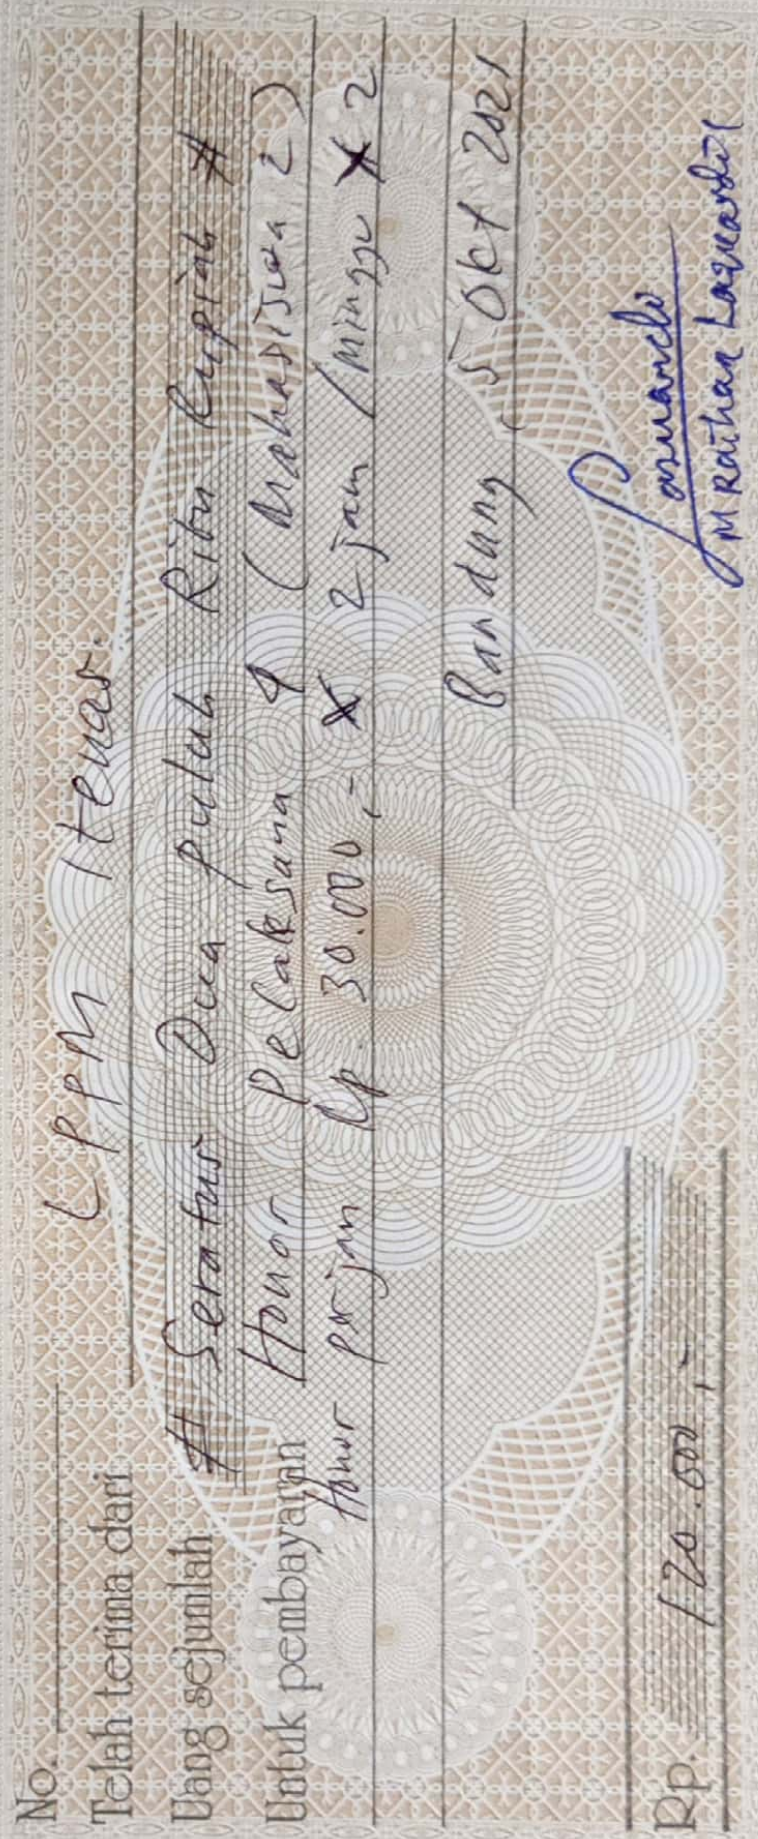 No.
Telah terima dari LPPM Itenas.
Uang sejumlah # Seratus Dua puluh Ribu Rupiah #
Untuk pembayaran Honor Pelaksana 4 (Mahasiswa 2)
Honor perjam Rp. 30.000,- x 2 jam / minggu x 2
Bandung, 5 Okt 2021
Rp. 120.000,-
M Raihan